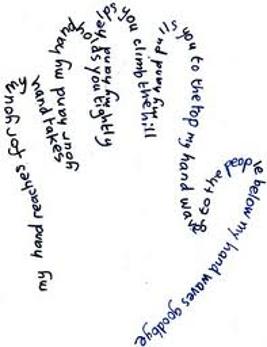 my hand reaches for your
my hand takes
your hand my hand
holds you tightly
my hand helps you climb the hill
my hand pulls you to the top my hand waves to the people below my hand waves goodbye